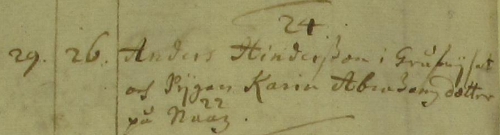 24.
29. 26. Anders Hindersson i
och Pigan Karin Abrahams dotter
22
på Naaz.